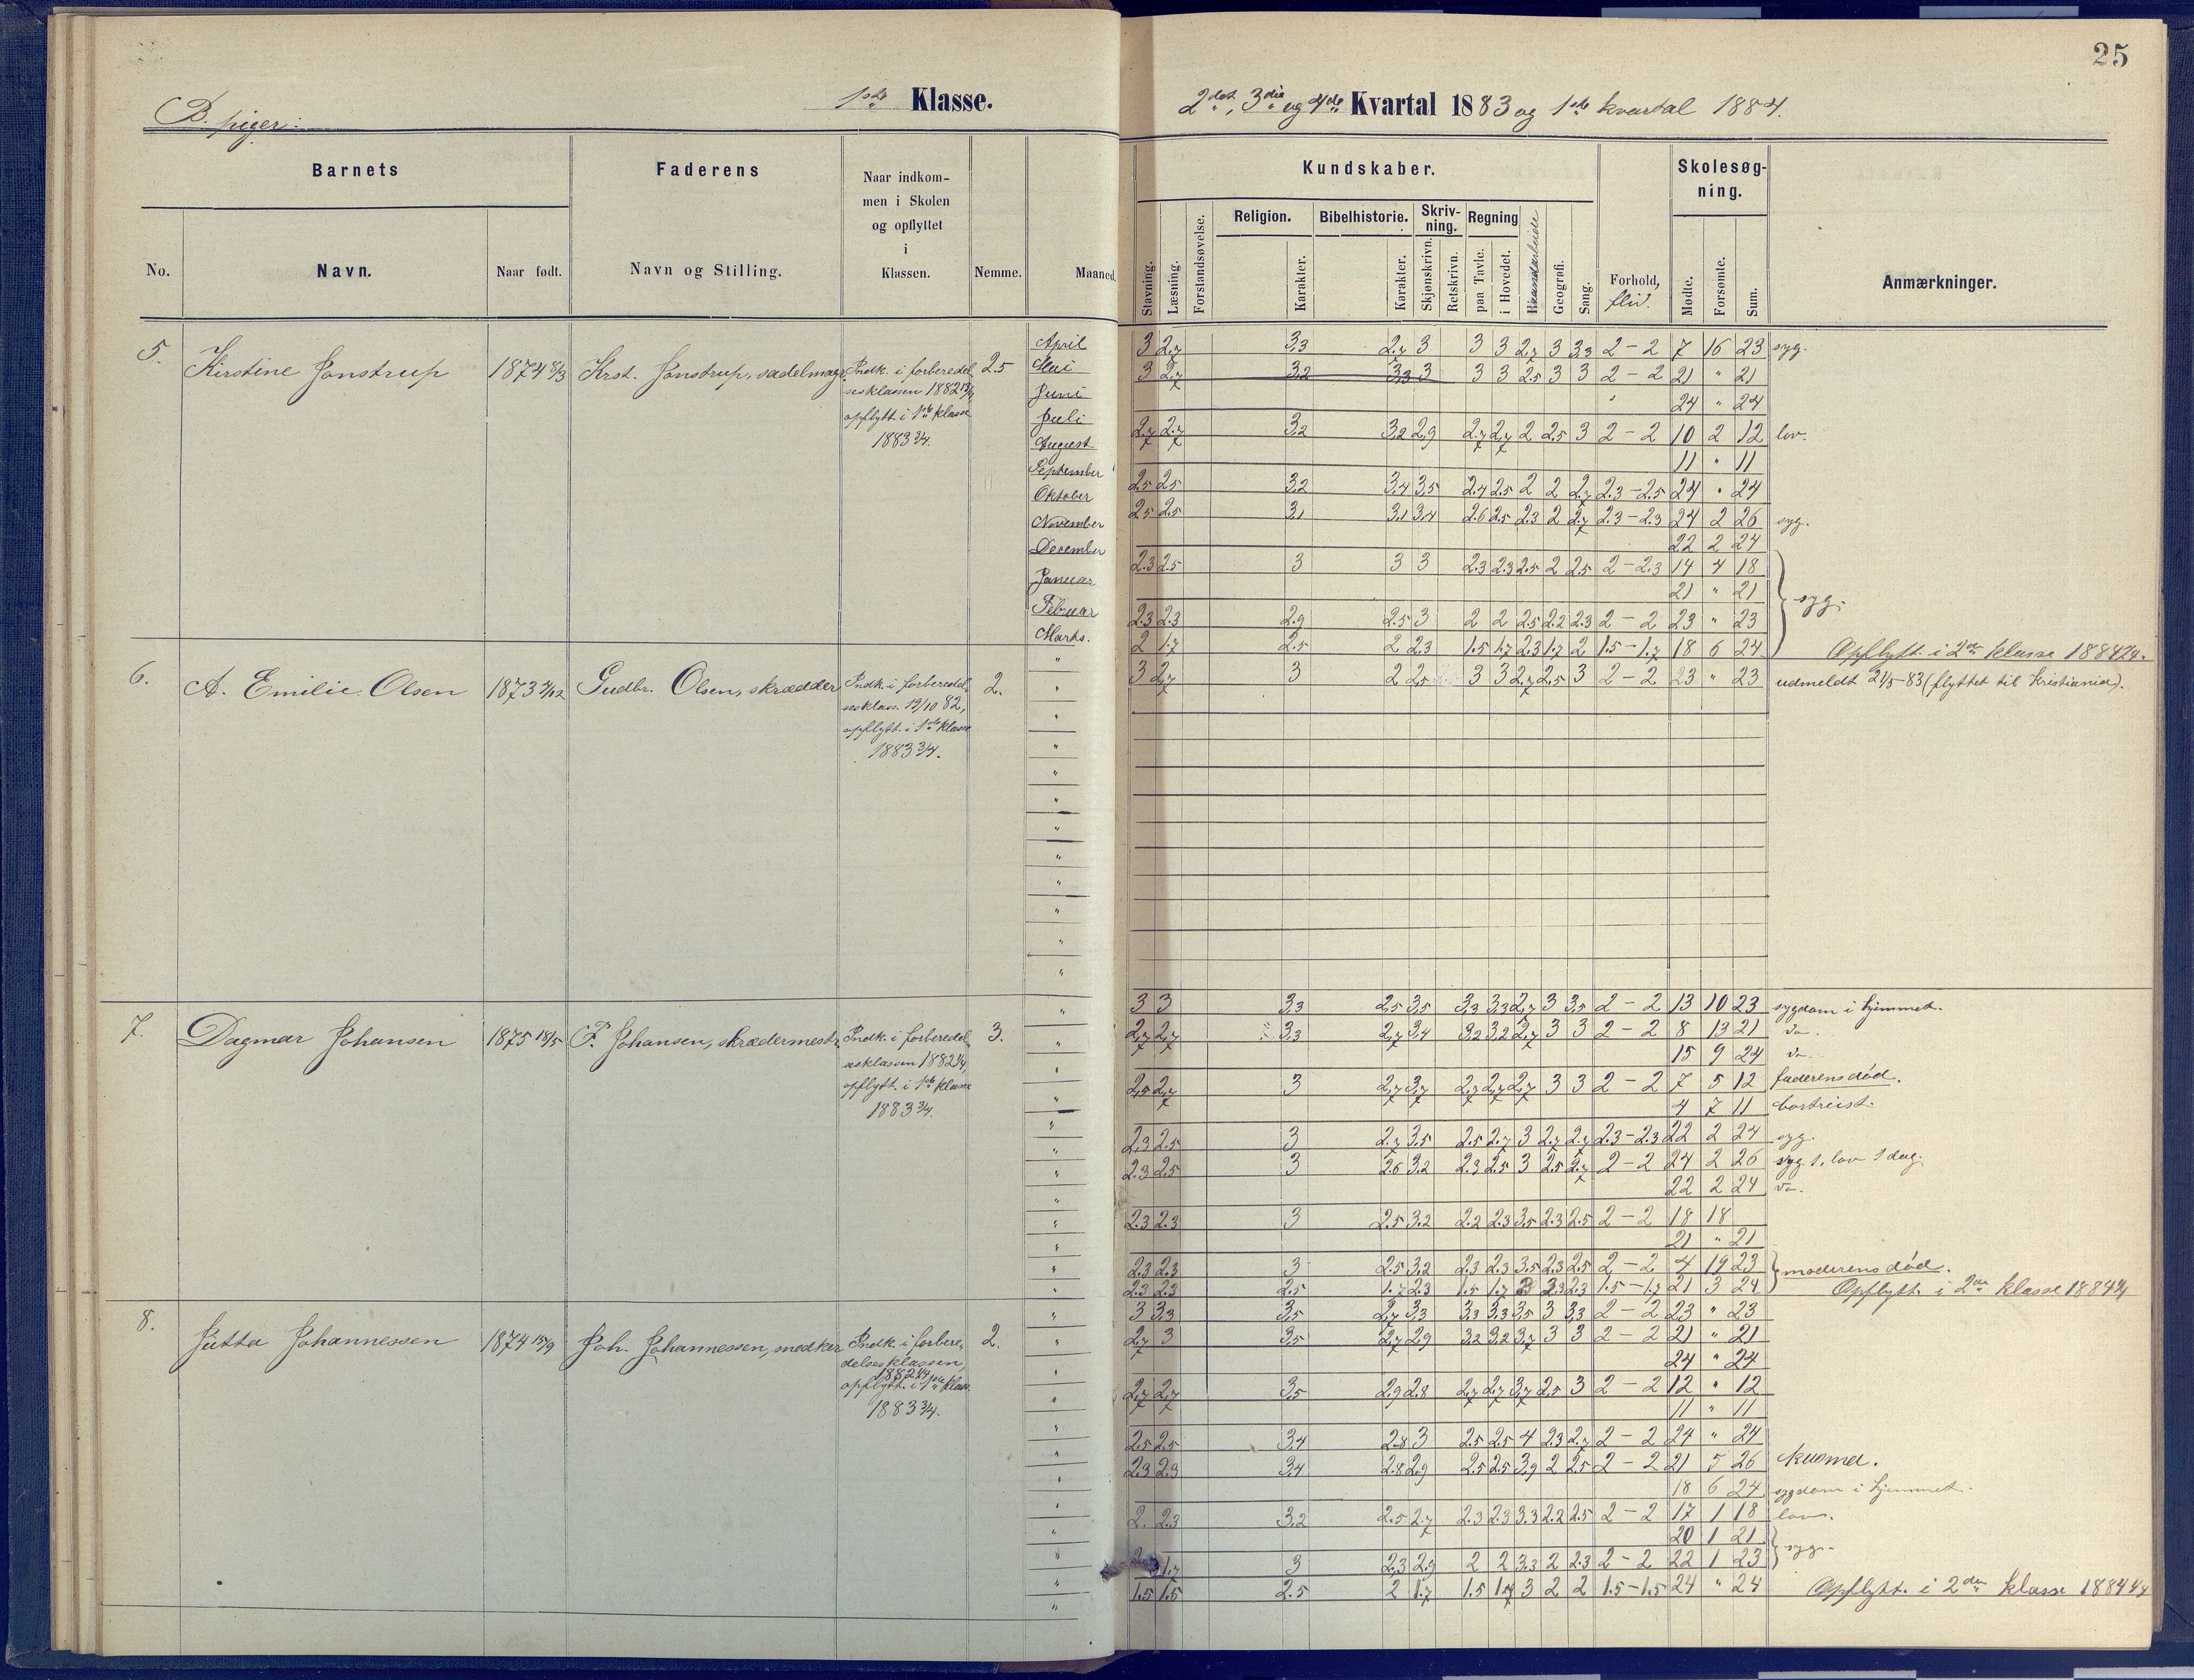 25
B. piger.
1ste Klasse.
2det, 3die og 4de Kvartal 1883 og 1ste kvartal 1884.
Barnets
Faderens
Naar indkom-
men i Skolen
og opflyttet
i
Klassen.
Nemme.
Maaned.
No.
Navn.
Naar født.
Navn og Stilling.
Kundskaber.
Skolesøg-
ning.
Stavning.
Læsning.
Forstandsøvelse.
Religion.
Karakter.
Bibelhistorie.
Karakter.
Skriv-
ning.
Skjønskrivn.
Retskrivn.
Regning
paa Tavle.
i Hovedet.
Haandarbeide
Geografi.
Sang.
Forhold,
flid.
Mødte.
Forsømte.
Sum.
Anmærkninger.
5. Kirstine Jonstrup 1874 8/3 Krst. Jonstrup, sadelmager. Indk. i forberedel- 2.5
sesklassen 1882
opflytt. i 1ste klasse
1883 3/4.
April 3 2,7 3,3 2,7 3 3 3 2,7 3 3,3 2-2 7 16 23 syg.
Mai 3 2,7 3,2 3,3 3 3 3 2,5 3 3 2-2 21 " 21
Juni 24 " 24
Juli 2,7 2,7 3,2 3,2 2,9 2,7 2,7 2 2,5 3 2-2 10 2 12 lov.
August 11 " 11
September 2,5 2,5 3,2 3,4 3,5 2.4 2.5 2 2 2,7 2.3-2.5 24 " 24
Oktober 2,5 2.5 3,1 3,1 3,4 2.6 2.5 2.3 2 2.7 2.3-2.3 24 2 26 syg.
November 22 2 24
December 2.3 2.5 3 3 3 2.3 2.3 2.5 2 2.5 2-2.3 14 4 18
Januar 21 " 21 syg.
Februar 2.3 2.3 2.9 2.5 3 2 2 2.5 2.2 2.3 2-2 23 " 23
Marts. 2 1.7 2.5 2 2.3 1.5 1.7 2.3 1.7 2 1.5-1.7 18 6 24 Opflytt. i 2den klasse 1884
6. A. Emilie Olsen 1873 Gudbr. Olsen, skrædder Indk. i forberedel- 2.
sesklass. 19/10 82,
opflytt. i 1ste klasse
1883 3/4.
3 2,7 3 2 2,5 3 3 2,7 2,5 3 2-2 23 " 23 udmeldt 21/5-83 (flyttet til Kristiania).
7. Dagmar Johansen 1875 18/5 F. Johansen, skrædermestr. Indk. i forberedel- 3.
sesklassen 1882
opflytt. i 1ste klasse
1883 3/4.
3 3 3,3 2,5 3,5 3,3 3,3 2,7 3 3,5 2-2 13 10 23 sygdom i hjemmet.
2,7 2,7 3,3 2,7 3,4 3,2 3,2 2,7 3 3 2-2 8 13 21 do.
15 9 24 do.
2,5 2,7 3 2,7 3,7 2,7 2,7 2,7 3 3 2-2 7 5 12 faderens død.
4 7 11 bortreist.
2,3 2.5 3 2.7 3,5 2.5 2.7 3 2.7 2.7 2.3-2.3 22 2 24 syg.
2.3 2.5 3 2.6 3.2 2.3 2.5 3 2.5 2.7 2-2 24 2 26 syg 1, lov 1 dag.
22 2 24 do.
2.3 2.3 3 2.5 3.2 2.2 2.3 3.5 2.3 2.5 2-2 18 18
21 " 21
2.3 2.3 3 2.5 3.2 2.3 2.3 3.5 2.3 2.5 2-2 4 19 23 moderens død.
2.3 2.3 2.5 1.7 2.3 1.5 1.7 3 2.3 2.3 1.5-1.7 21 3 24 Opflytt. i 2den klasse 1884
8. Jutta Johannessen 1874 15/9 Joh. Johannessen, snedker Indk. i forbere- 2.
delsesklassen,
1882
opflytt. i 1ste klass.
1883 3/4.
3 3,3 3,5 2,7 3,3 3,3 3,3 3,5 3 3,3 2-2 23 " 23
2,7 3 3,5 2,7 2,9 3,2 3,2 3,7 3 3 2-2 21 " 21
24 " 24
2,7 2,7 3,5 2,9 2,8 2,7 2,7 3,7 2,5 3 2-2 12 " 12
11 " 11
2.5 2.5 3,4 2.8 3 2.5 2.5 4 2.3 2.7 2-2 24 " 24
2.3 2.3 3,4 2.8 2.9 2.5 2.5 3,9 2 2.5 2-2 21 5 26
18 6 24 sygdom i hjemmet.
2. 2.3 3,2 2.5 2.7 2.3 2.3 3.3 2.2 2.5 2-2 17 1 18 lov.
20 1 21 syg.
1.7 3 2,3 2.9 2 2 3.3 2 2.3 2-2 22 1 23
1.5 1.5 2.5 2 1.7 1.5 1.7 3 2 2 1.5-1.5 24 " 24 Opflytt. i 2den klasse 1884